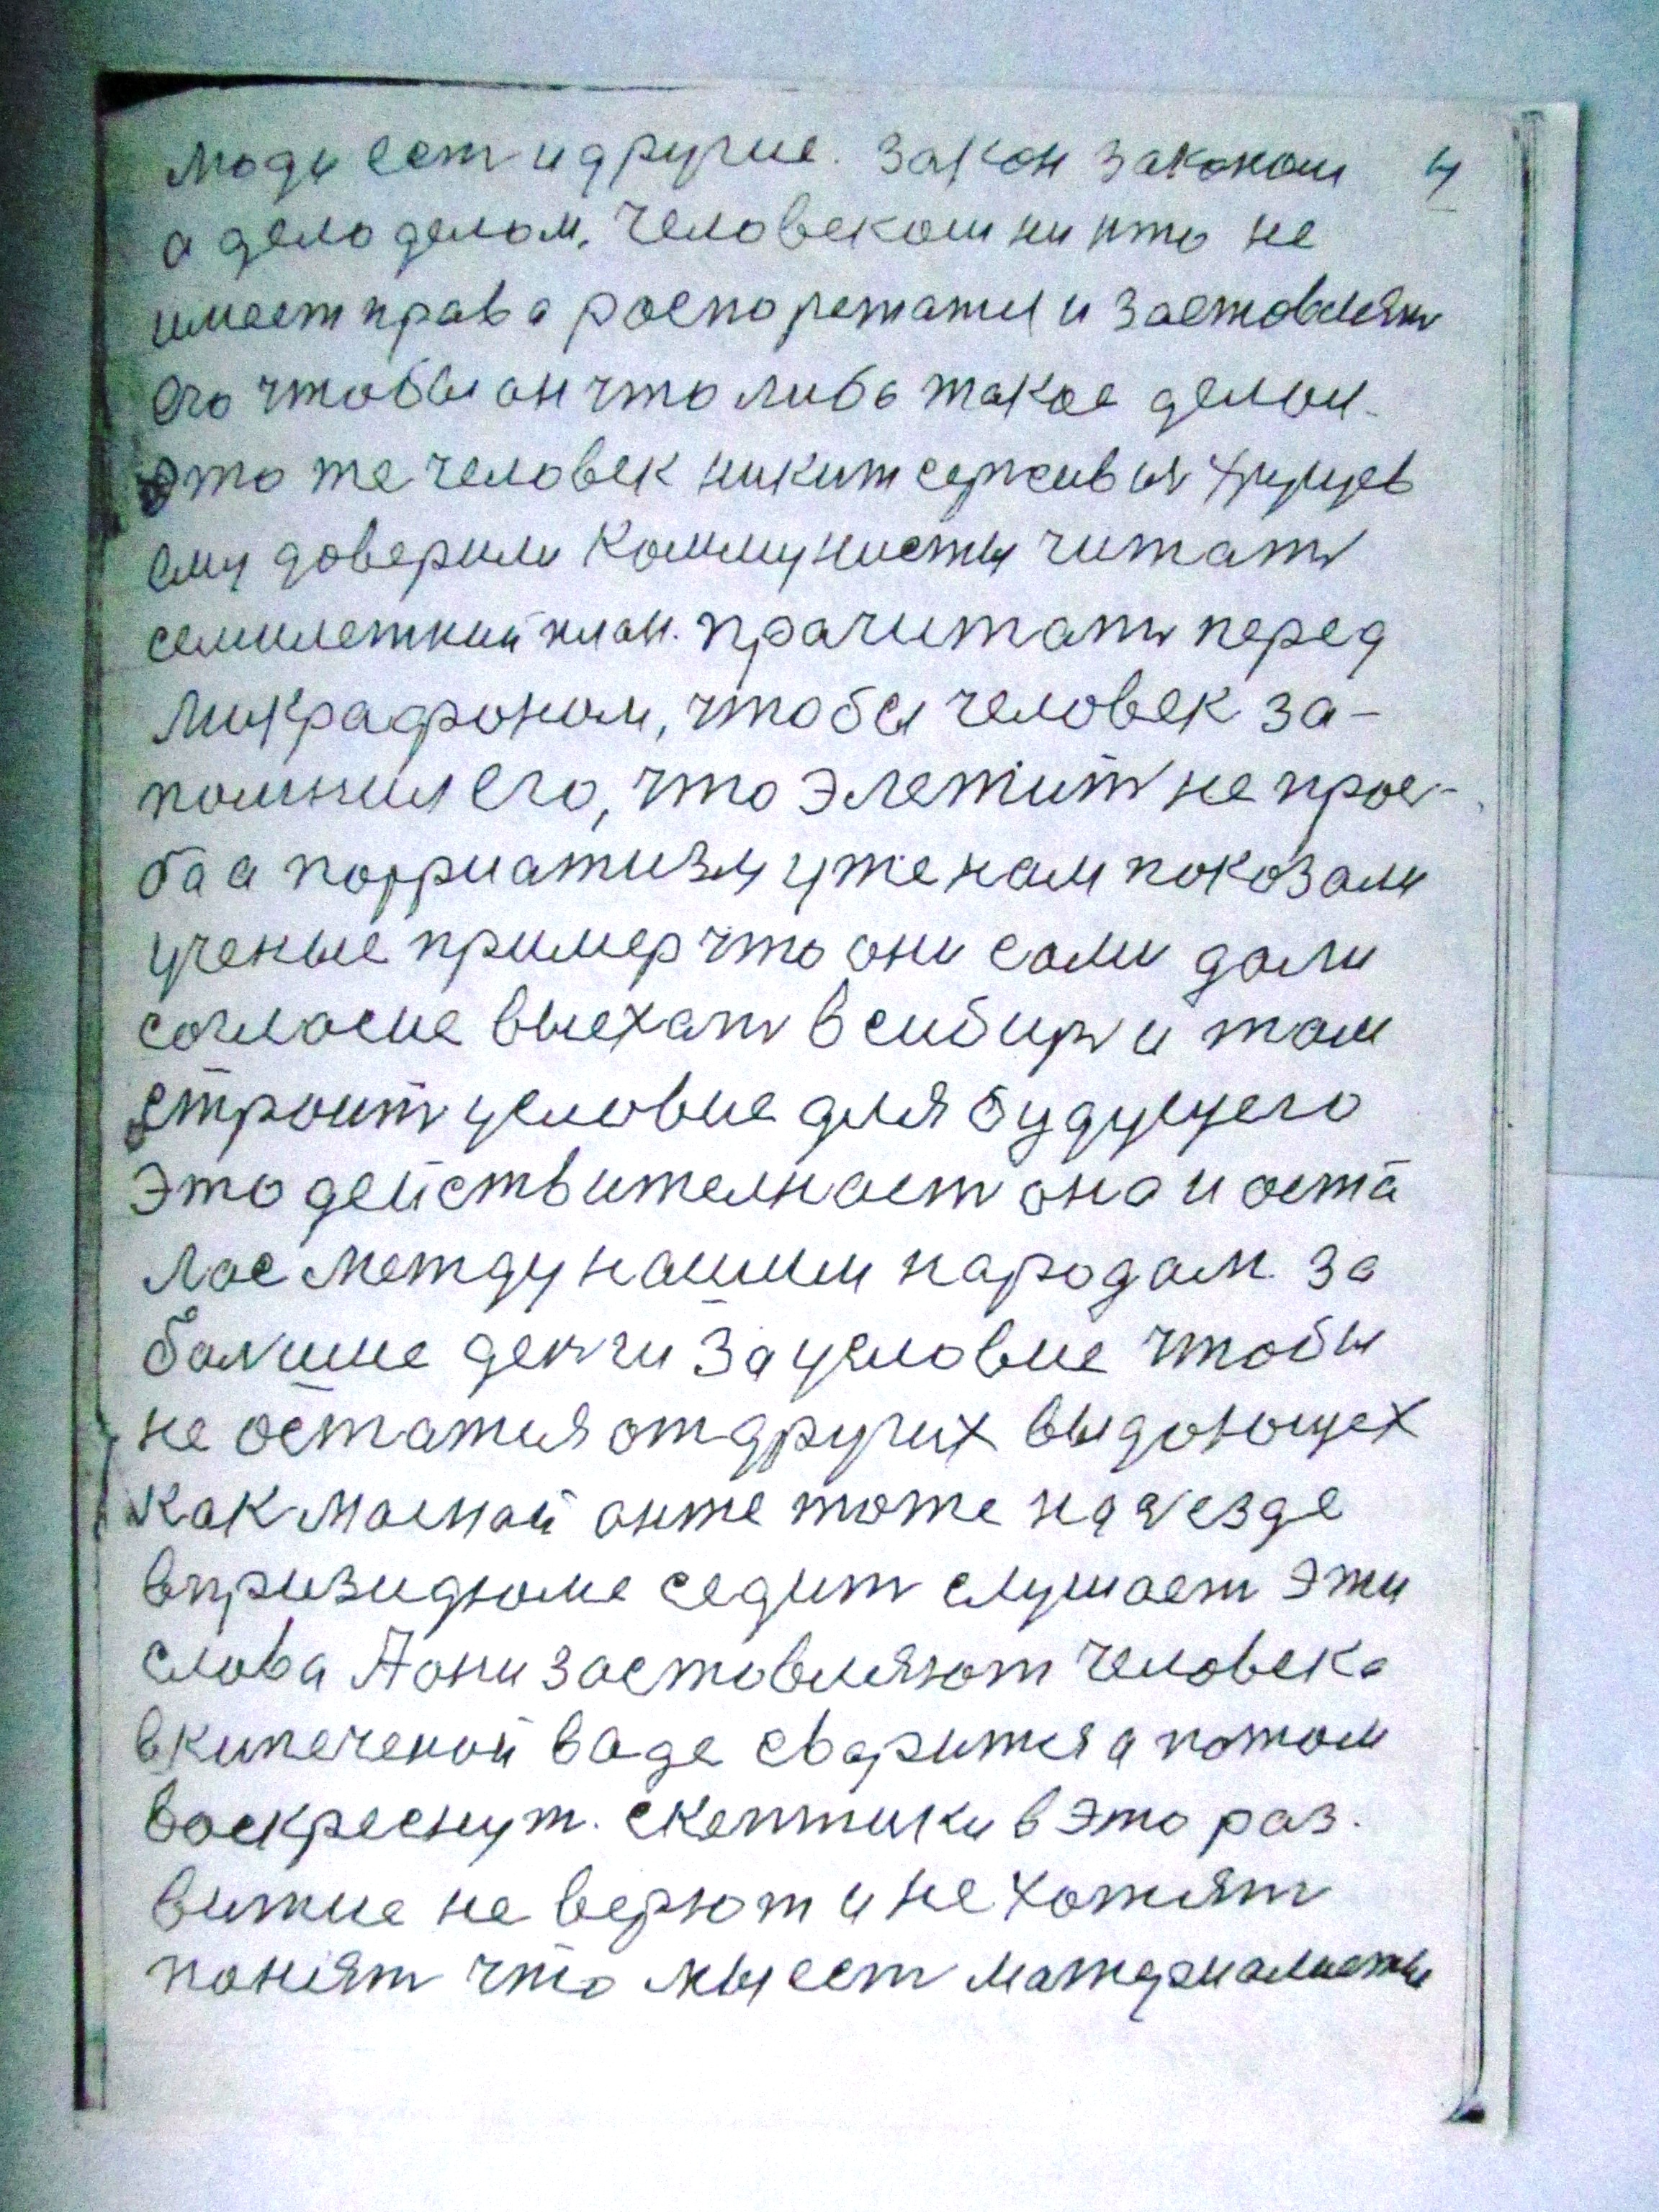 люди ест и другие. Закон законом 4
а дело делом. Человеком ни кто не
имеет права роспорежатця и застовлять
его чтобы он что либо такое делал.
это же человек никит сергеивич Хрущев
ему доверили Коммунисты читать
семилетний план. прачитать перед
Микрафоном, чтобы человек за-
помнил его, что э лежит не прос-
ба а потриатизм уже нам покозали
ученые пример что они сами дали
согласие выехать в сибирь и там
строить условие для будущего
Это действителност она и оста
лос между нашим народам за
большие денги За условие чтобы
не остатця от других выдоющех
Как масной он же тоже на везде
в призидюме седит слушает эти
слова А они застовляют человека
в кипеченой ваде сворится а потом
воскреснут. скептики в это раз.
витие не верют и не хотять
понять что мы ест материалисты